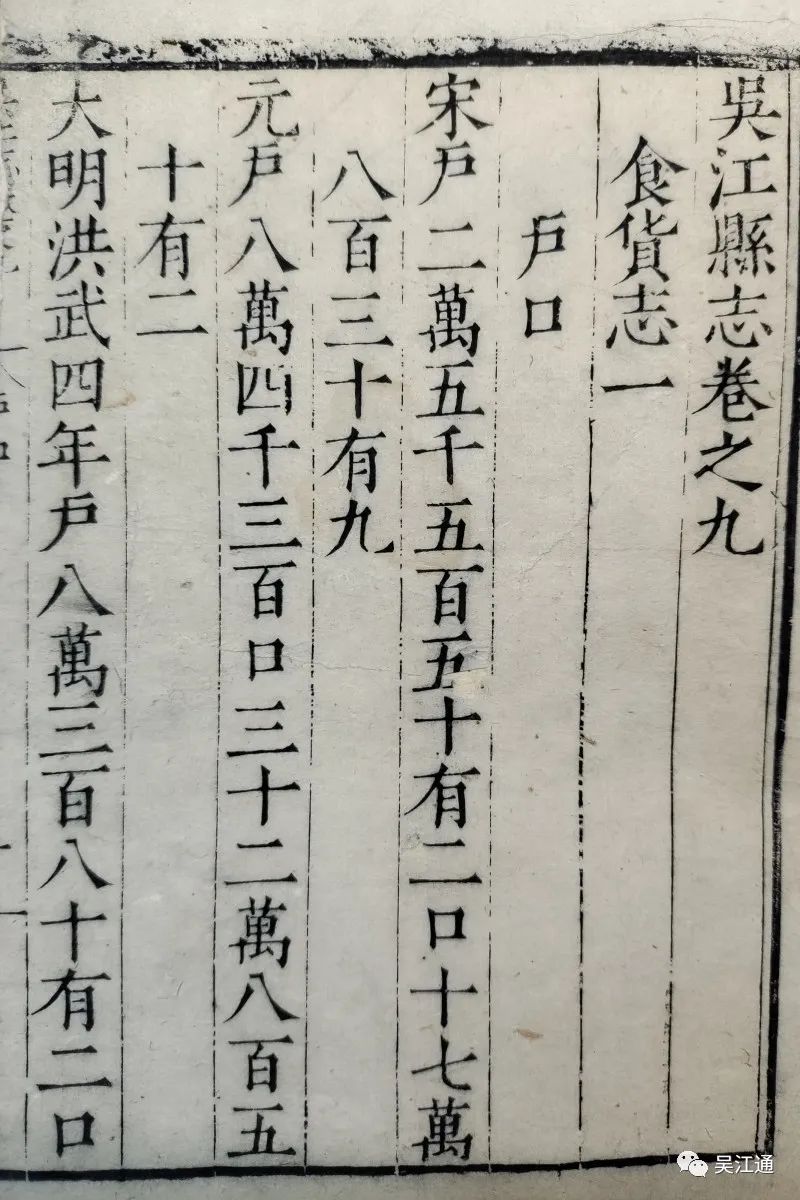 吳江縣志卷之九
食貨志一
戶口
宋戶二萬五千五百五十有二口十七萬
八百三十有九
元戶八萬四千三百口三十二萬八百五
十有二
大明洪武四年戶八萬三百八十有二口
吴江通